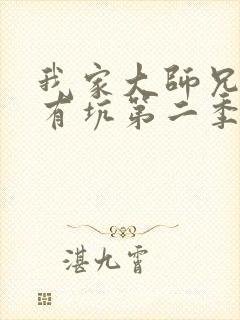 我家大師兄
有坑第二季
湛九霄